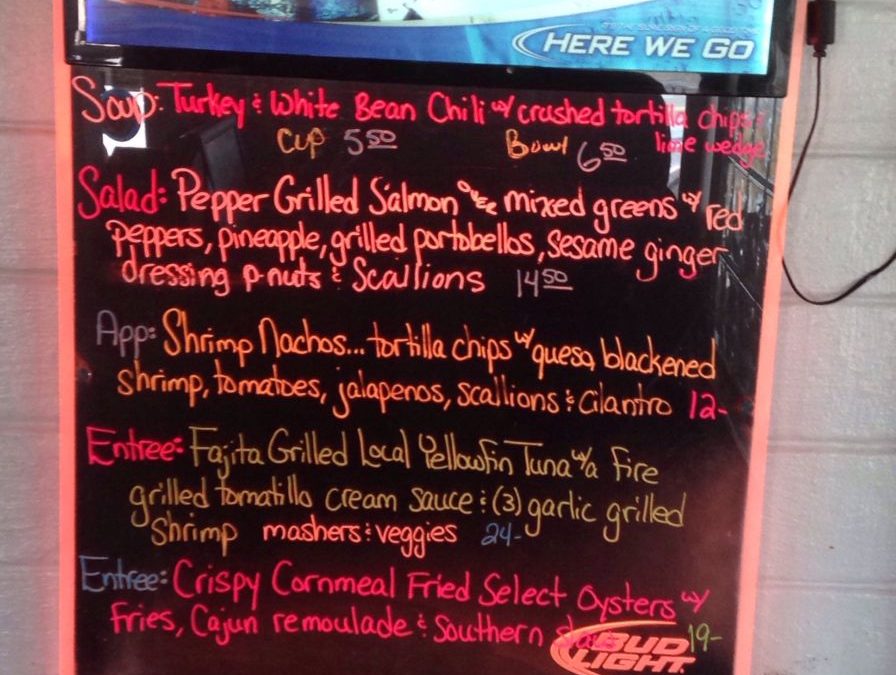 HERE WE GO
Soup: Turkey & White Bean Chili w/ crushed tortilla chips &
lime wedge
Cup 5.50 Bowl 6.50
Salad: Pepper Grilled Salmon over mixed greens w/ red
peppers, pineapple, grilled portobellos, sesame ginger
dressing p-nuts & Scallions 14.50
App: Shrimp Nachos... tortilla chips w/ queso, blackened
shrimp, tomatoes, jalapenos, scallions & Cilantro 12-
Entree: Fajita Grilled Local Yellowfin Tuna w/a fire
grilled tomatillo cream sauce & (3) garlic grilled
Shrimp mashers & veggies 24-
Entree: Crispy Cornmeal Fried Select Oysters w/
Fries, Cajun remoulade & Southern slaw 19-
BUD
LIGHT